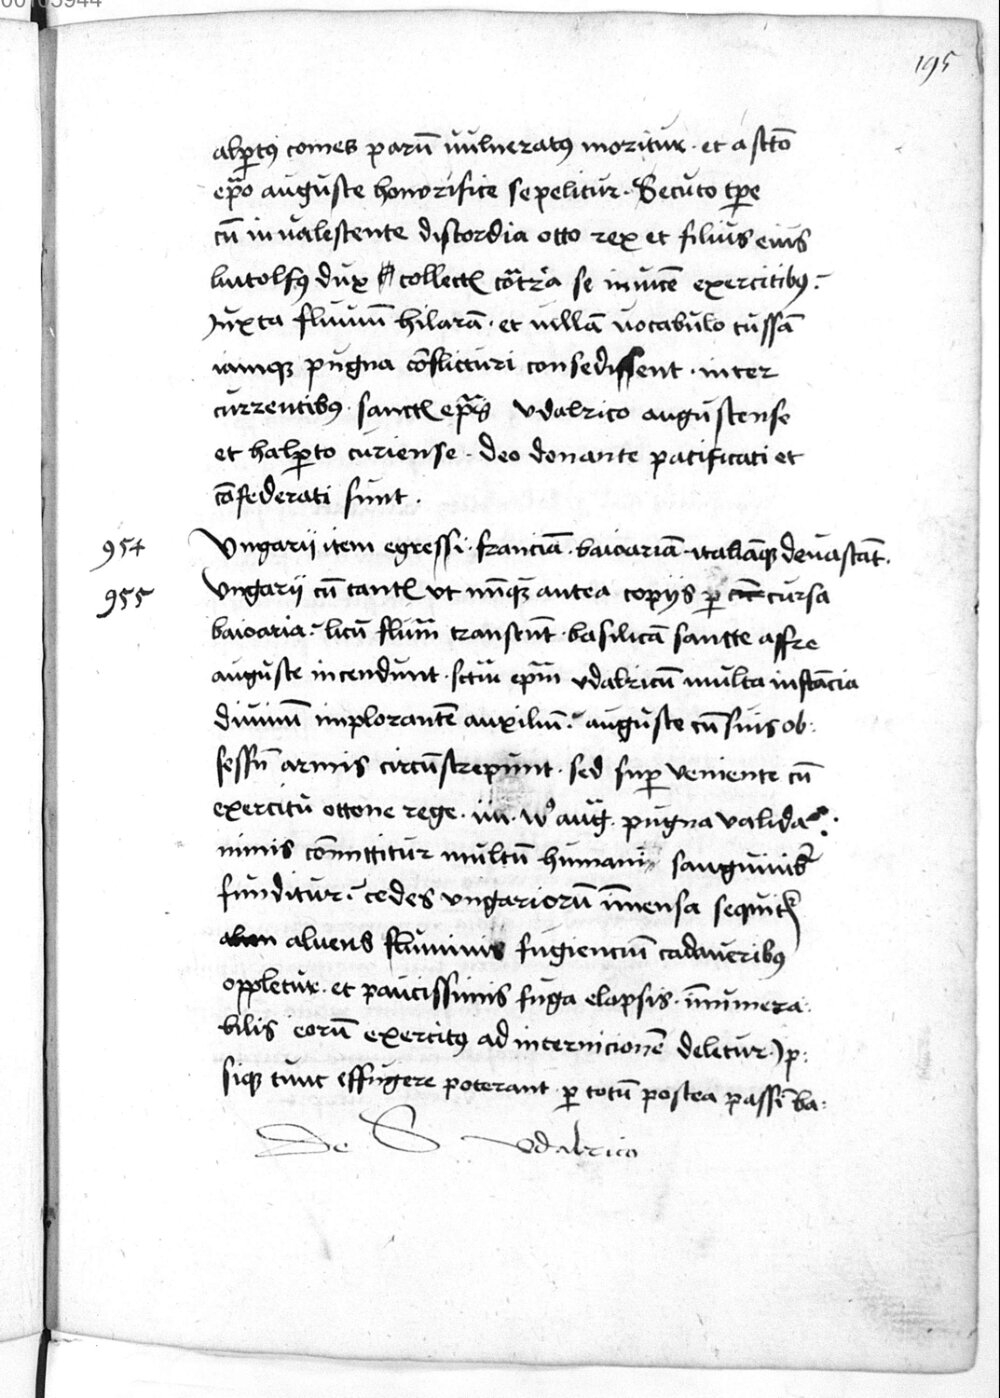 195
alptus comes parū uulneratus moritur · et a scto
epō auguste honorifice sepelitur · Secuto tpe
cū inualescente discordia otto rex et filius eius
liutolfus dux collectis cōtra se inuicē exercitibus :
Iuxta fluuiū hilarā · et uillā uocabulo tussā
iamque pugna cōflicturi consedissent · inter
currentibus · sanctis epis vdalrico augustense
et halpto curiense · deo donante pacificati et
cōfederati sunt ·
954 Vngarii item egressi · franciā · baioariā · italiāque deuastāt ·
955 Vngarij cū tantis vt nūquam antea copijs p cursa
baioaria · licū fluuiū transeūt · basilicā sancte affre
auguste incendunt · sctm epm vdalricū multa instācia
diuinū implorantē auxiliū · auguste cū suis ob:
sessū armis circūstrepunt · sed sup veniente cū
exercitu ottone rege · iiii · id aug · pugna valida
nimis cōmittitur multū humani sanguinis
funditur · cedes vngariorū īmensa sequitur
alueus fluminis fugienciū cadaueribus
oppletur · et paucissimis fuga elapsis · īnumera:
bilis eorū exercitus ad internicionē deletur · Ip:
sique tunc effugere poterant · p totū postea passī ba:
De S Vdalrico